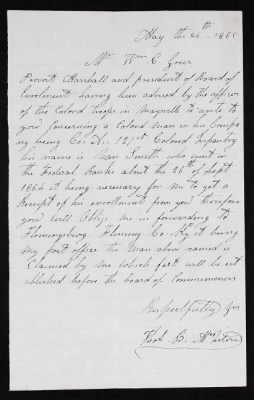 May the 26th 1865
Mr Wm C Grier
Provost Marshall and president of Board of
Enrolment having been advised by the officers
of the Colord troops in Maysville to write to
you concerning a Colord Man in his Compa
ny being Co. K., 121st Colored Infantry
his name is Dan Smitt, who went in
the Federal Ranks about the 26th of Sept
1864 it being necessary for me to get a
Receipt of his enrollment from you therefore
you will oblige me in forwarding to
Flemingsburg Fleming Co. Ky it being
my post office the Man above named is
Claimed by me which fact will be est
ablished before the board of Commissioners
Respectfully Yrs
Thos. B.